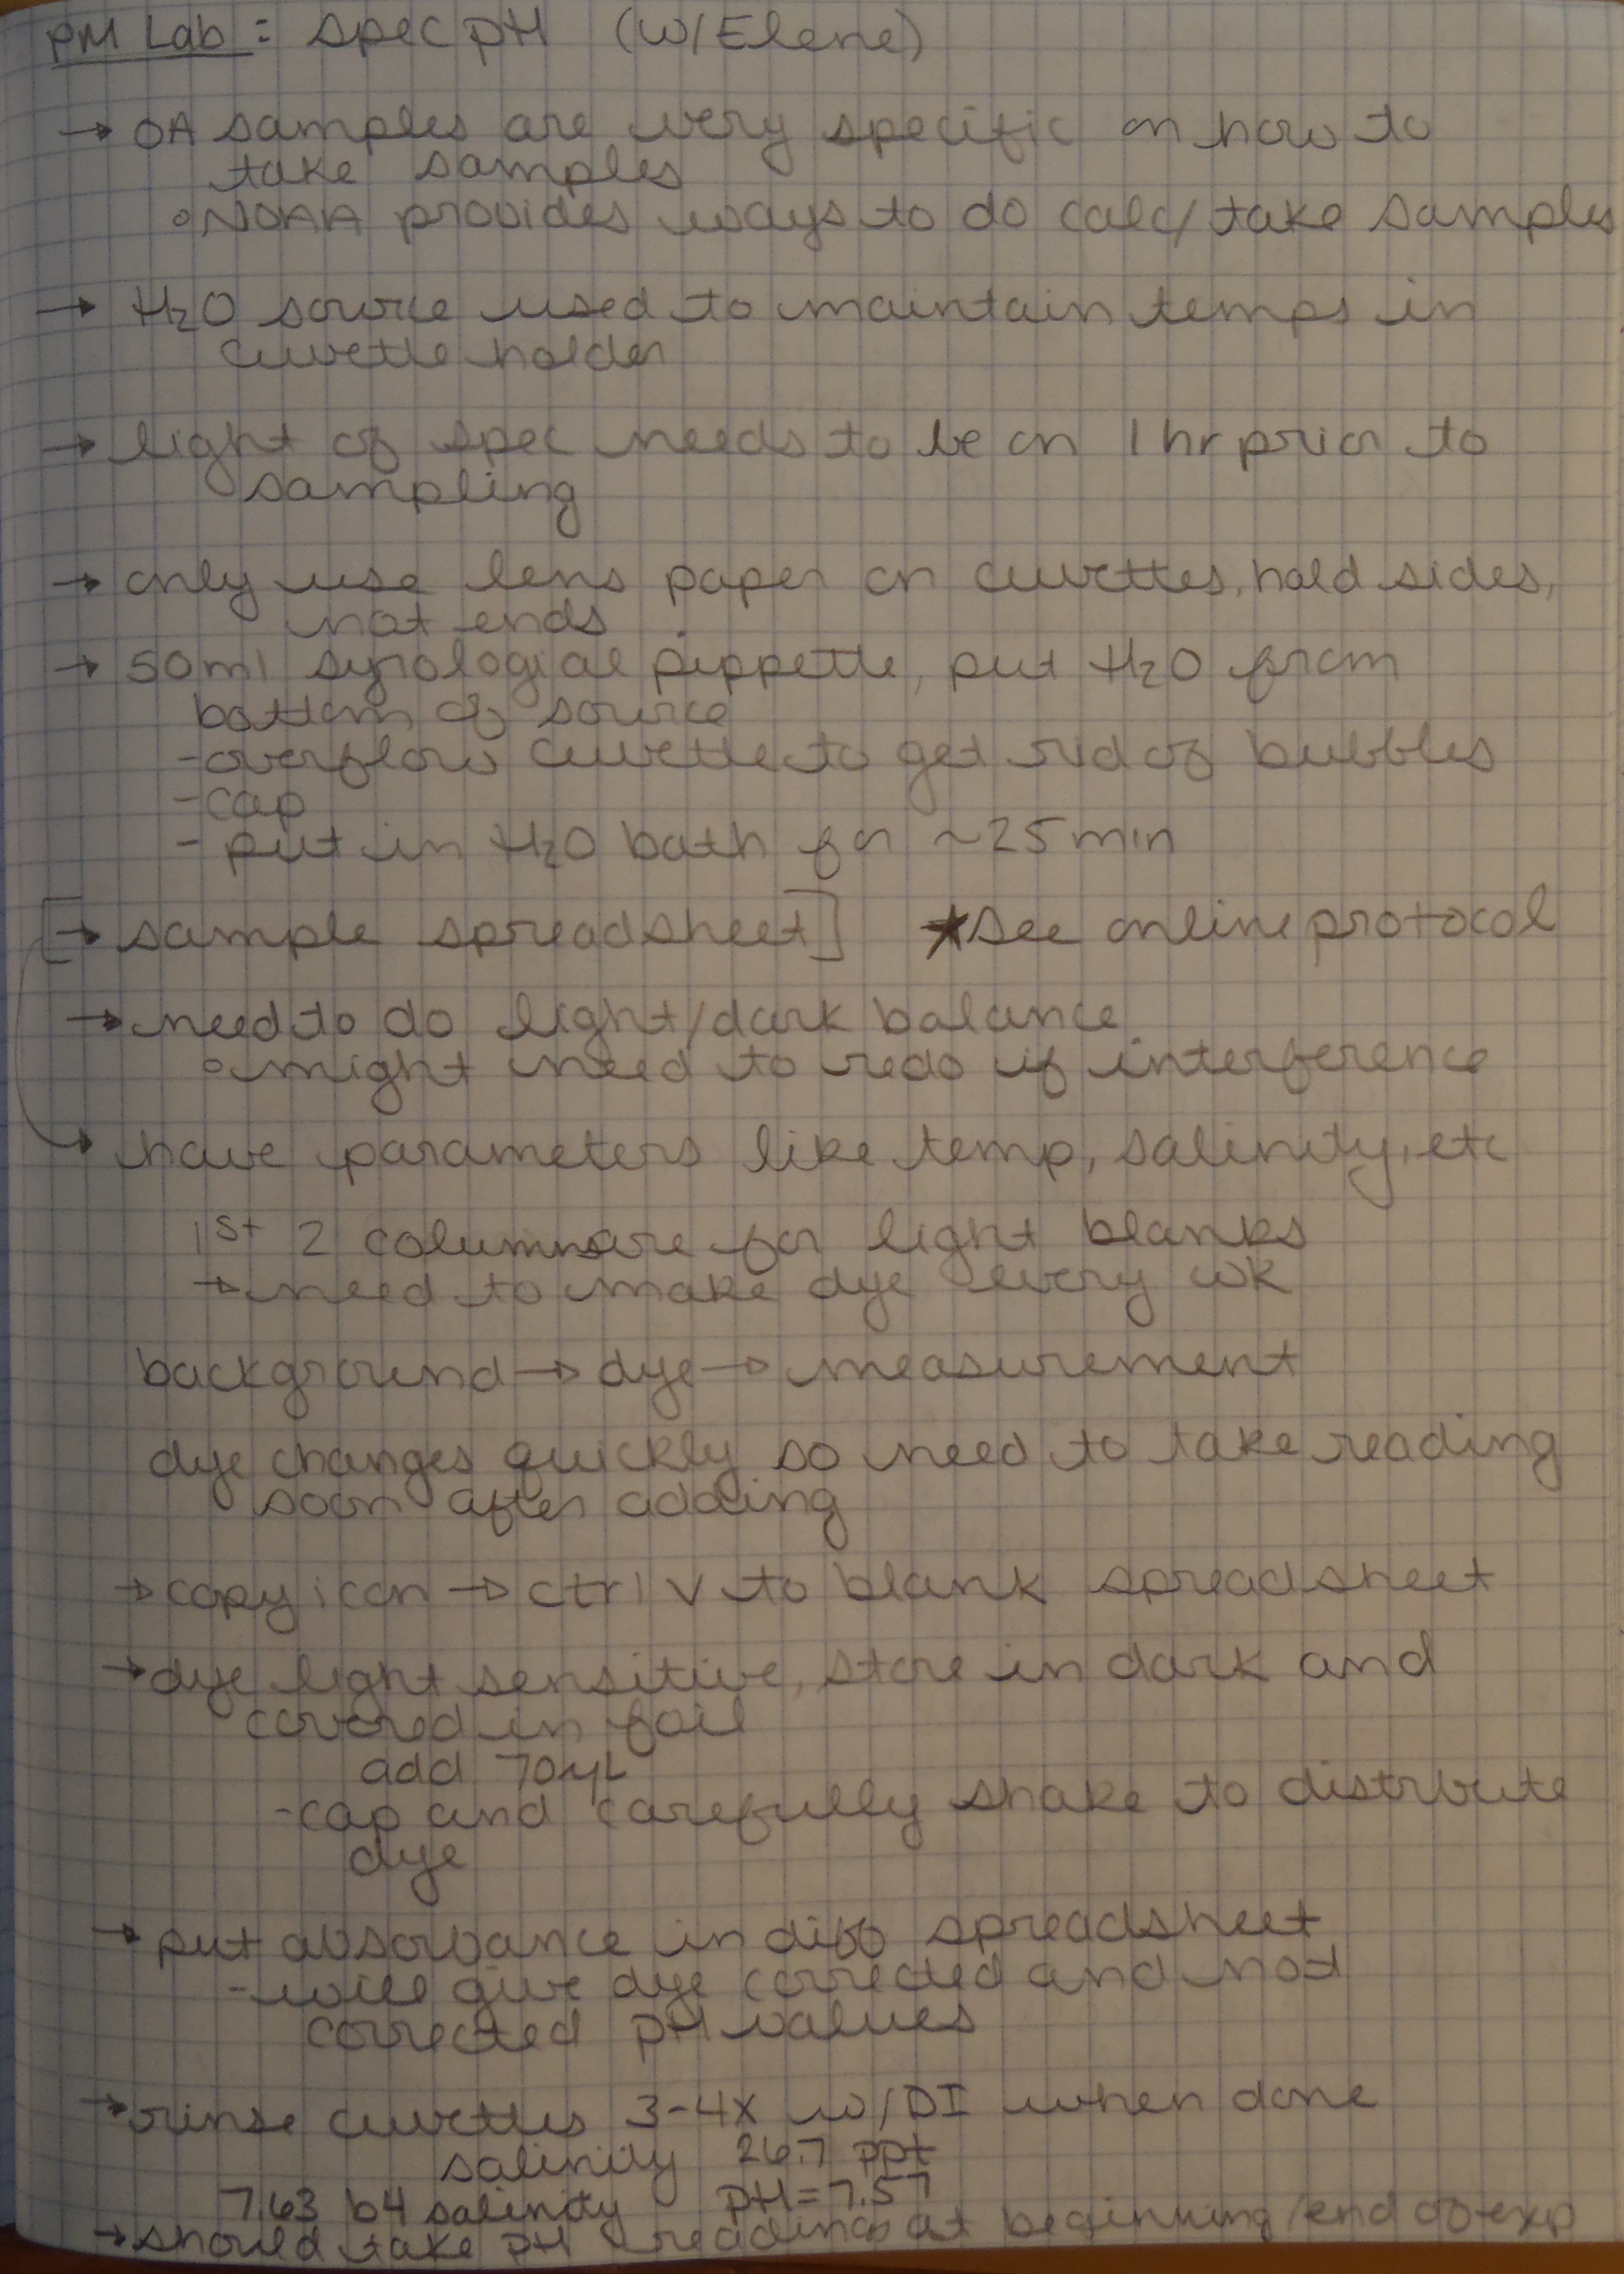 PM Lab: spec pH (w/Elene)
→ OA samples are very specific on how to
take samples
◦ NOAA provides ways to do calc/take samples
→ H₂O source used to maintain temps in
cuvette holder
→ light of spec needs to be on 1 hr prior to
sampling
→ only use lens paper on cuvettes, hold sides,
not ends
→ 50ml syrological pippette, put H₂O from
bottom of source
- overflow cuvette to get rid of bubbles
- cap
- put in H₂O bath for ~25 min
[→ sample spreadsheet] ★see online protocol
→ need to do light/dark balance
◦ might need to redo if interference
→ have parameters like temp, salinity, etc
1st 2 columns are for light blanks
→ need to make dye every wk
background → dye → measurement
dye changes quickly so need to take reading
soon after adding
→ copy icon → ctrl V to blank spreadsheet
→ dye light sensitive, store in dark and
covered in foil
add 70 µL
- cap and carefully shake to distribute
dye
→ put absorbance in diff spreadsheet
- will give dye corrected and not
corrected pH values
→ rinse cuvettes 3-4x w/DI when done
salinity 26.7 ppt
7.63 b4 salinity pH = 7.57
→ should take pH readings at beginning/end of exp